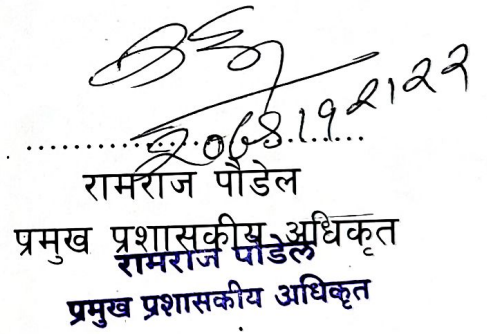 २०७९।१२।२२
रामराज पौडेल
प्रमुख प्रशासकीय अधिकृत
रामराज पौडेल
प्रमुख प्रशासकीय अधिकृत